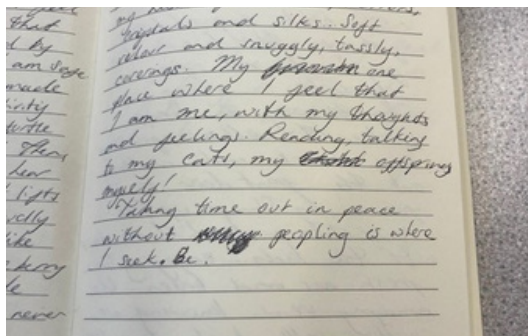 that
by
am safe
made
turtle
Them
hear
lifts
like
never
crystals and silks. Soft
colour and snuggly, tassly,
coverings. My one
place where I feel that
I am me, with my thoughts
and feelings. Reading, talking
to my cats, my offspring
myself!
Taking time out in peace
without peopling is where
I seek. Be.